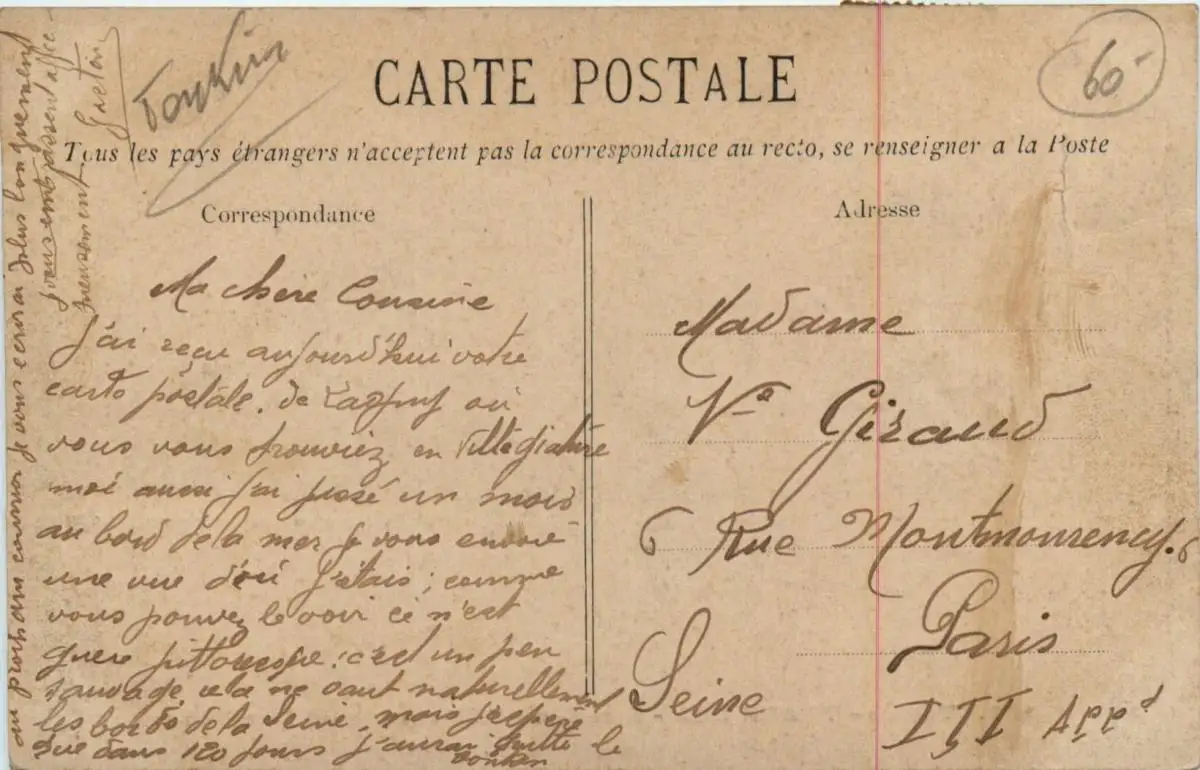 CARTE POSTALE
Tous les pays étrangers n'acceptent pas la correspondance au recto, se renseigner a la Poste
Correspondance
Adresse
Tonkin
60-
Ma chère Cousine
J'ai reçu aujourd'hui votre
carte postale. de où
vous vous trouviez en villégiature
moi aussi j'ai passé un mois
au bord de la mer je vous envoie
une vue d'où j'étais ; comme
vous pouvez le voir ce n'est
guère pittoresque : c'est un peu
sauvage, cela ne vaut naturellement
les bords de la Seine, mais j'espère
que dans 120 jours j'aurai quitté le
Tonkin
au prochain courrier je vous écrirai plus longuement
Gaston
Madame
Vve Giraud
6 Rue Montmorency. 6
Paris
Seine
III Arrt